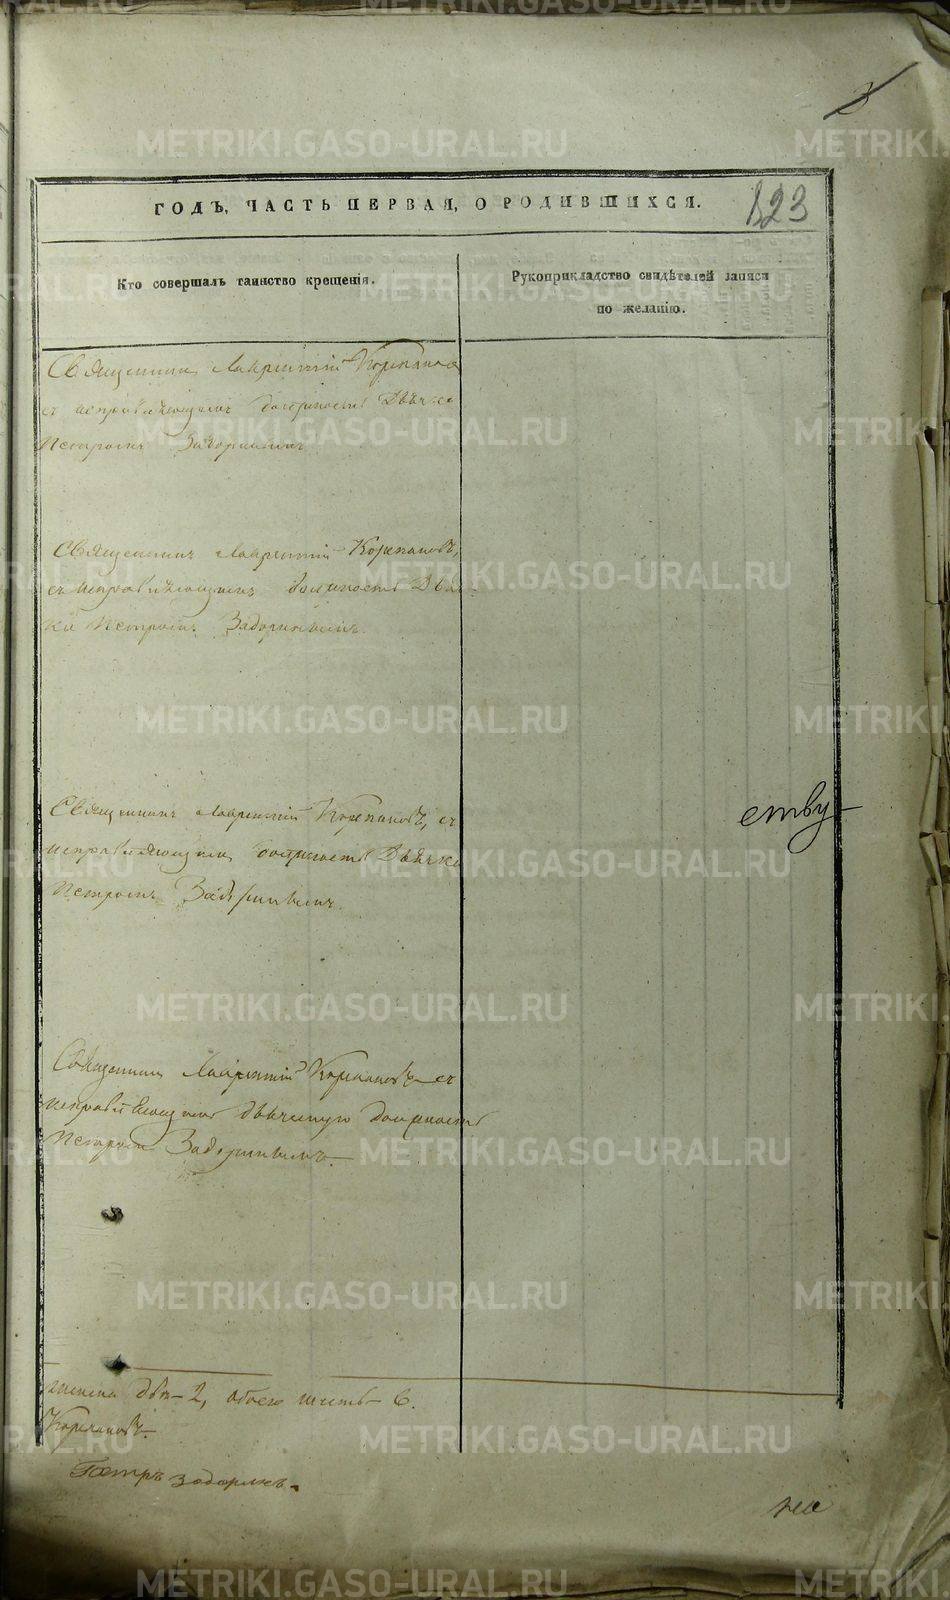 3
ГОДЪ, ЧАСТЬ ПЕРВАЯ, О РОДИВШИХСЯ.
123
Кто совершалъ таинство крещенія.
Рукоприкладство свидѣтелей записи
по желанію.
Священникъ Лаврентій Корепановъ
съ исправляющимъ должность Дьячка
Петромъ Задоринымъ
Священникъ Лаврентій Корепановъ,
съ исправляющимъ должность Дьяч-
ка Петромъ Задоринымъ.
Священникъ Лаврентій Корепановъ, съ
исправляющимъ должность Дьячка
Петромъ Задоринымъ.
ству
Священникъ Лаврентій Корепановъ съ
исправляющимъ дьяческую должность
Петромъ Задоринымъ.
женска двѣ - 2, обоего шесть - 6.
Корепановъ.
Петръ Задоринъ.
METRIKI.GASO-URAL.RU